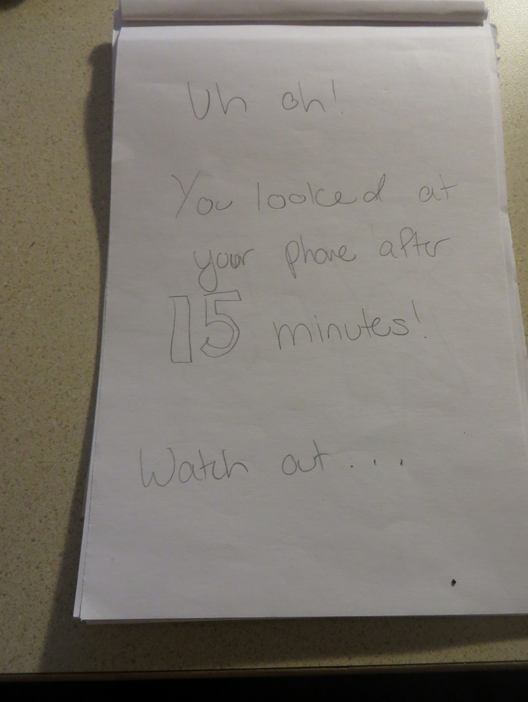 Uh oh!
You looked at
your phone after
15 minutes!
Watch out...